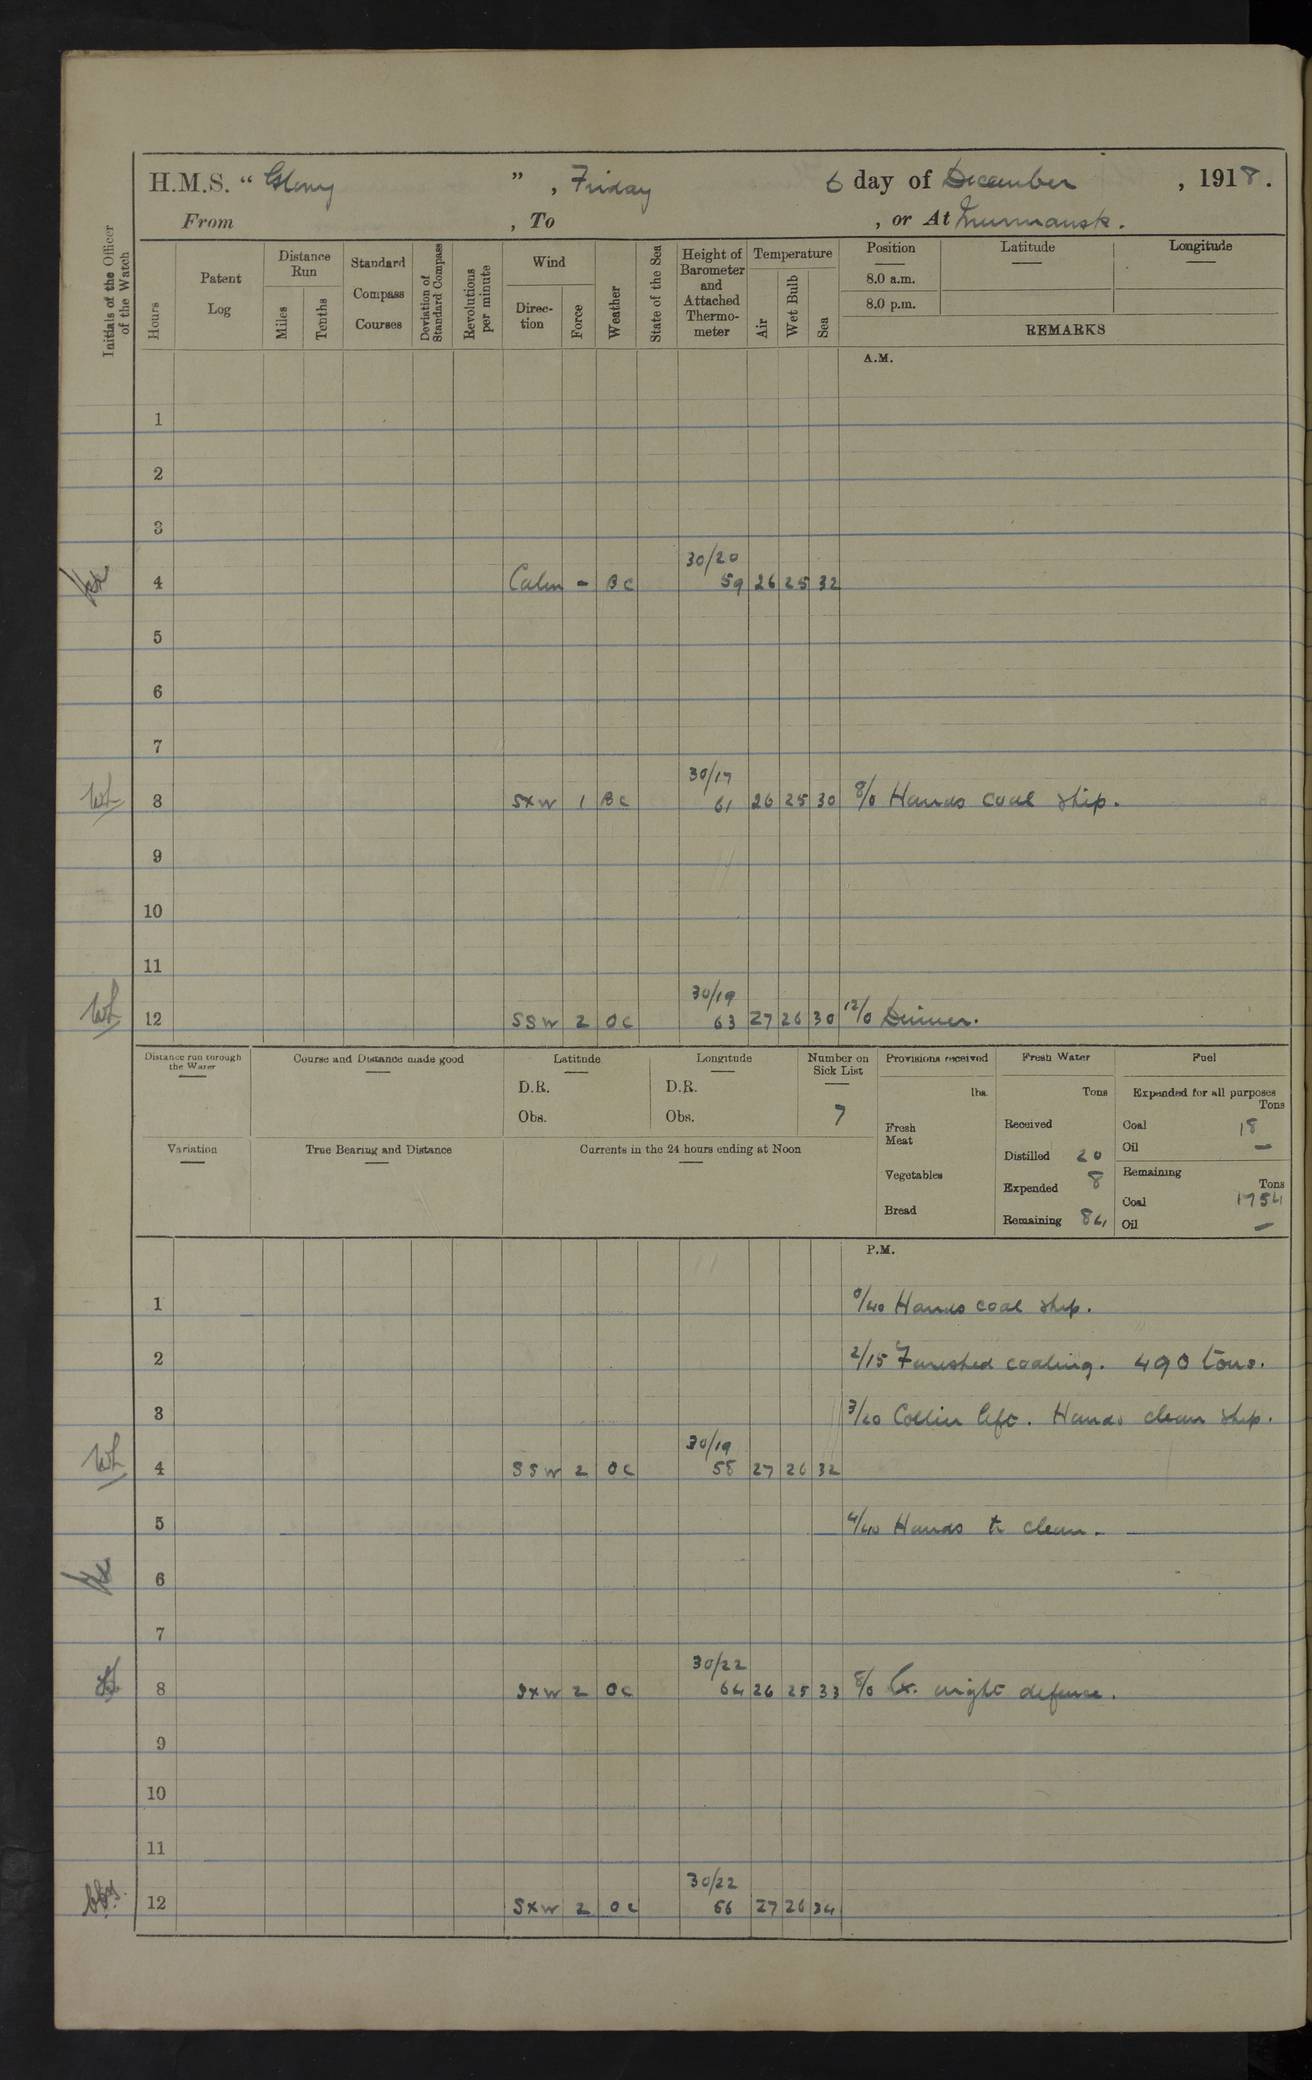 H.M.S. " Glory " , Friday 6 day of December , 1918.
From , To , or At Murmansk.
Initials of the Officer of the Watch
Hours
Patent Log
Distance Run
Miles
Tenths
Standard Compass Courses
Deviation of Standard Compass
Revolutions per minute
Wind
Direc-tion
Force
Weather
State of the Sea
Height of Barometer and Attached Thermo-meter
Temperature
Air
Wet Bulb
Sea
Position Latitude Longitude
8.0 a.m.
8.0 p.m.
REMARKS
A.M.
1
2
3
30/20
4 Calm - BC 59 26 25 32
5
6
7
30/17
WL 8 SXW 1 BC 61 26 25 30 8/0 Hands coal ship.
9
10
11
30/19
WL 12 SSW 2 OC 63 27 26 30 12/0 Dinner.
Distance run through the Water
Course and Distance made good
Latitude
D.R.
Obs.
Longitude
D.R.
Obs.
Number on Sick List
7
Provisions received
lbs.
Fresh Meat
Vegetables
Bread
Fresh Water
Tons
Received
Distilled 20
Expended 8
Remaining 84
Fuel
Expended for all purposes
Tons
Coal 18
Oil —
Remaining
Tons
Coal 1754
Oil —
Variation
True Bearing and Distance
Currents in the 24 hours ending at Noon
P.M.
1 0/40 Hands coal ship.
2 2/15 Finished coaling. 490 tons.
3 3/20 Collier left. Hands clean ship.
30/19
WL 4 SSW 2 OC 58 27 26 32
5 4/40 Hands to clean.
6
7
30/22
8 SXW 2 OC 64 26 25 33 8/0 Ex. night defence.
9
10
11
30/22
12 SXW 2 OC 66 27 26 34